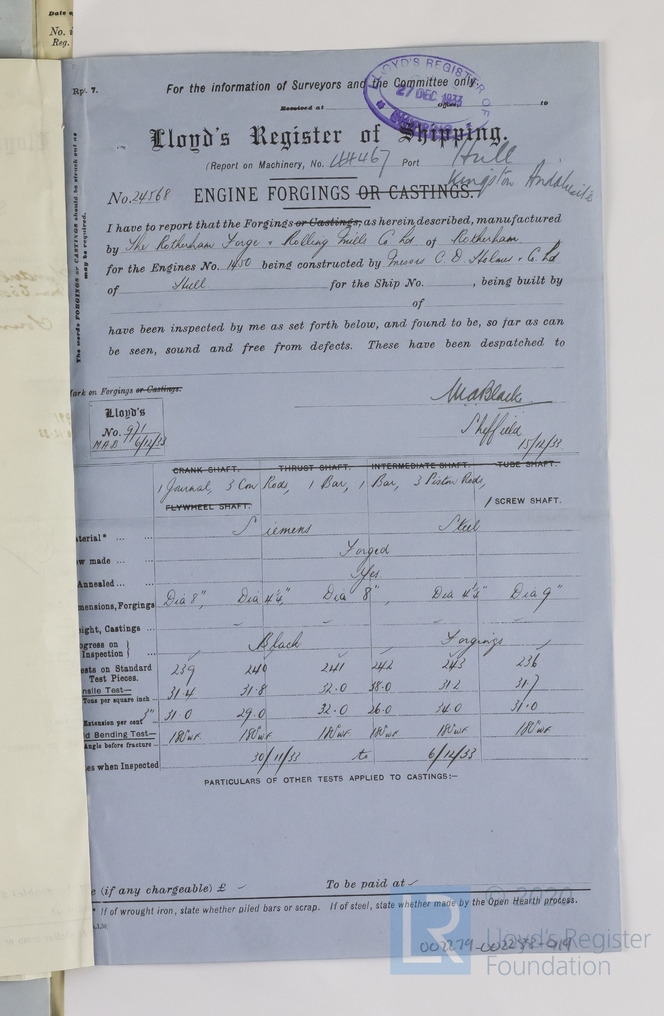 Date
No.
Reg.
Rpt. 7.
For the information of Surveyors and the Committee only.
LLOYD'S REGISTER OF
27 DEC 1933
Received at
to
Lloyd's Register of Shipping.
(Report on Machinery, No. 44467 Port Hull
Kingston Andalusite
No. 24568 ENGINE FORGINGS OR CASTINGS.
The words FORGINGS or CASTINGS should be struck out as may be required.
I have to report that the Forgings or Castings, as herein described, manufactured
by The Rotherham Forge & Rolling Mills Co Ltd of Rotherham
for the Engines No. 1450 being constructed by Messrs C. D. Holmes & Co Ld
of Hull for the Ship No. , being built by
of
have been inspected by me as set forth below, and found to be, so far as can
be seen, sound and free from defects. These have been despatched to
Mark on Forgings or Castings.
Lloyd's
No. 971
MAB 6/12/33
M A Black
Sheffield
15/12/33
CRANK SHAFT. THRUST SHAFT. INTERMEDIATE SHAFT. TUBE SHAFT.
1 Journal, 3 Con Rods, 1 Bar, 1 Bar, 3 Piston Rods,
FLYWHEEL SHAFT. 1 SCREW SHAFT.
aterial* Siemens Steel
w made Forged
Annealed Yes
mensions, Forgings Dia 8", Dia 4¼", Dia 8", Dia 4¼" Dia 9"
ight, Castings
ogress on Inspection Black Forgings
ests on Standard Test Pieces. 239 240 241 242 243 236
nsile Test— Tons per square inch 31.4 31.8 32.0 38.0 31.2 31.7
Extension per cent 3" 31.0 29.0 32.0 26.0 34.0 31.0
d Bending Test— Angle before fracture 180° WF 180° WF 180° WF 180° WF 180° WF 180° WF
es when Inspected 30/11/33 to 6/12/33
PARTICULARS OF OTHER TESTS APPLIED TO CASTINGS:—
e (if any chargeable) £ To be paid at
* If of wrought iron, state whether piled bars or scrap. If of steel, state whether made by the Open Hearth process.
LR
© 2020
Lloyd's Register
Foundation
002279-002288-0119